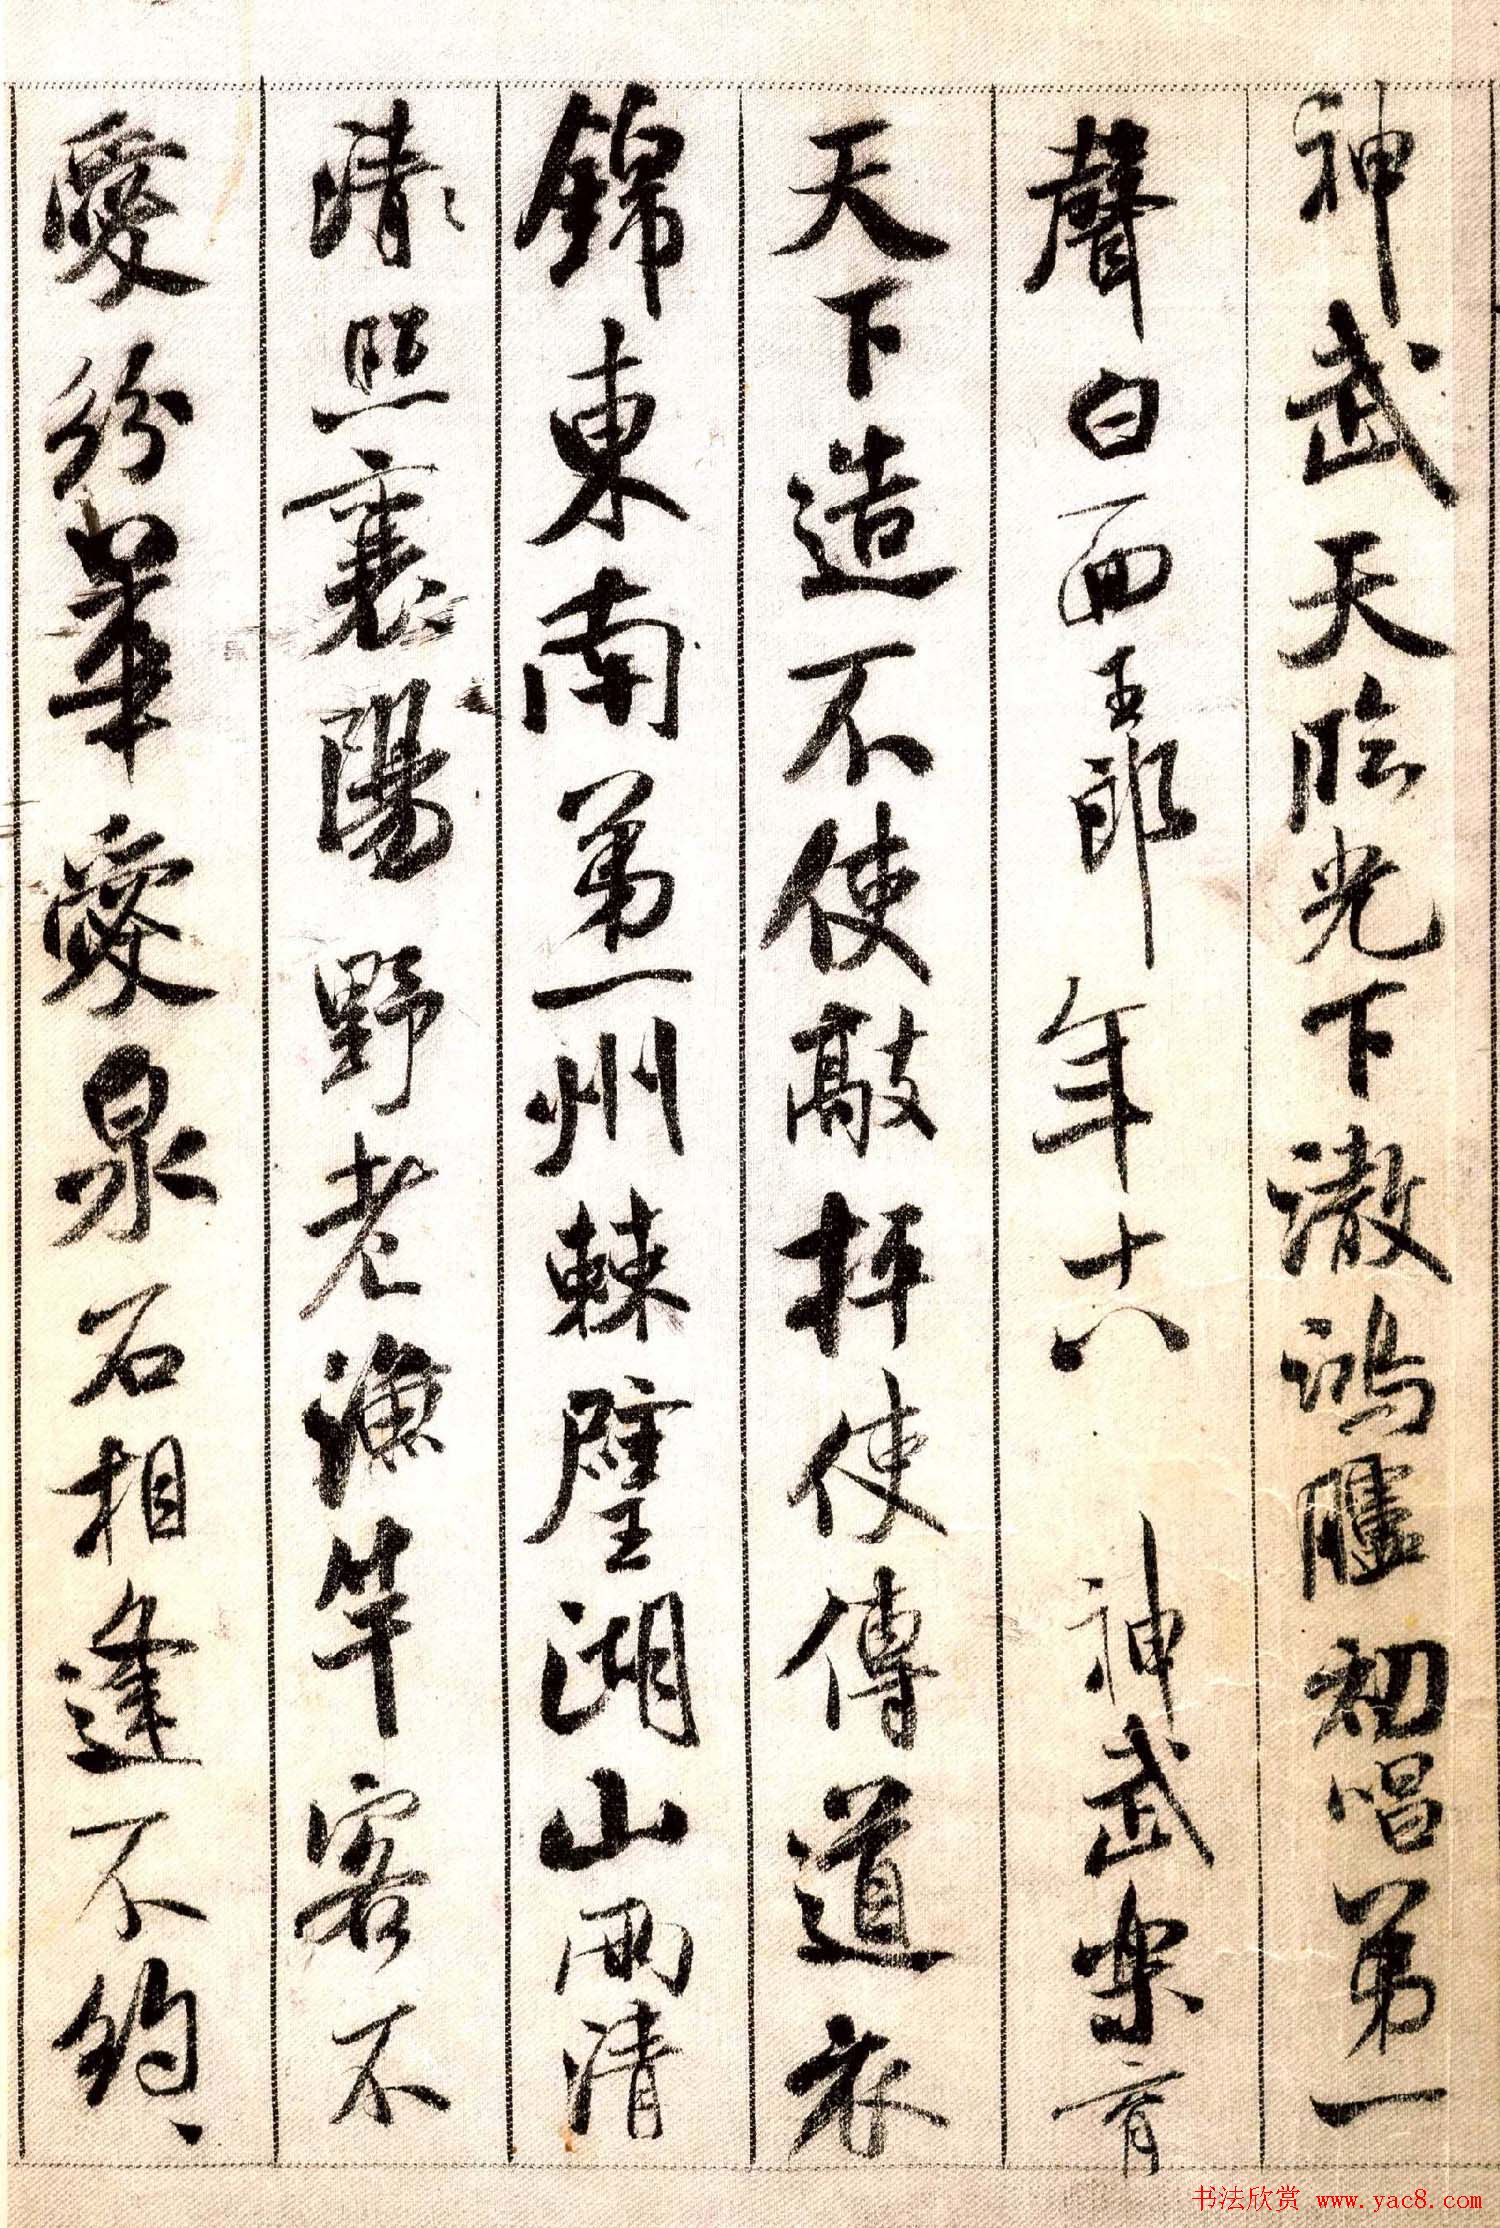 神武天臨光下澈鴻臚初唱第一
聲白面王郎年十八神武樂育
天下造不使敲抨使傳道衣
錦東南第一州棘璧湖山兩清
清照襄陽野老漁竿客不
愛紛華愛泉石相逢不約
书法欣赏 www.yac8.com